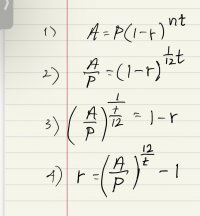 1) A = P(1-r)^{nt}
2) \frac{A}{P} = (1-r)^{\frac{1}{12}t}
3) \left(\frac{A}{P}\right)^{\frac{1}{\frac{t}{12}}} = 1-r
4) r = \left(\frac{A}{P}\right)^{\frac{12}{t}} - 1